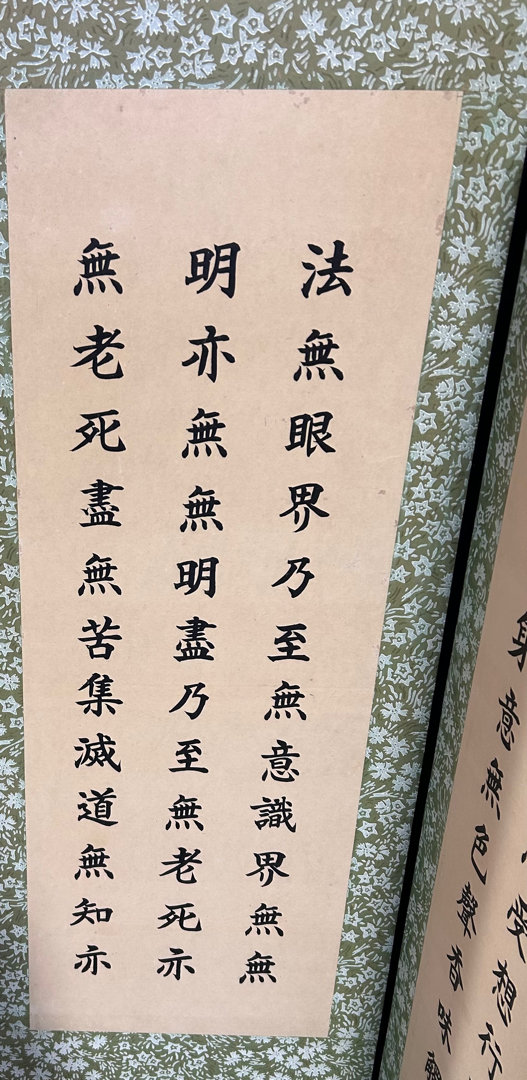 想行
意無色聲香味觸
法無眼界乃至無意識界無無
明亦無無明盡乃至無老死亦
無老死盡無苦集滅道無知亦